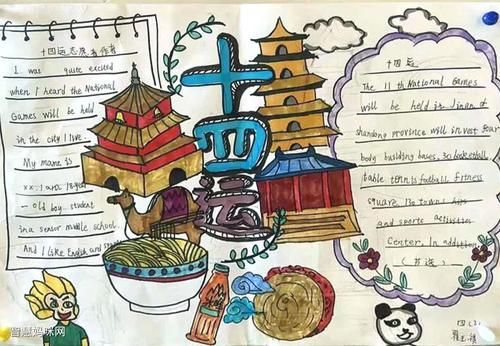 十四运志愿者作者
I was quite excited
when I heard the National
Games will be held
in the city I live.
My name is
xx. I am 18 year
- old boy student
in a senior middle school.
And I like English and
十四运
十四运
The 11 th National Games
will be held in Jinan of
shandong province will invest four
body building bases, 30 basketball,
table tennis football, fitness
square. 130 town
and sports activities
Center. In addition
(节选)
四(2)
智慧妈咪网